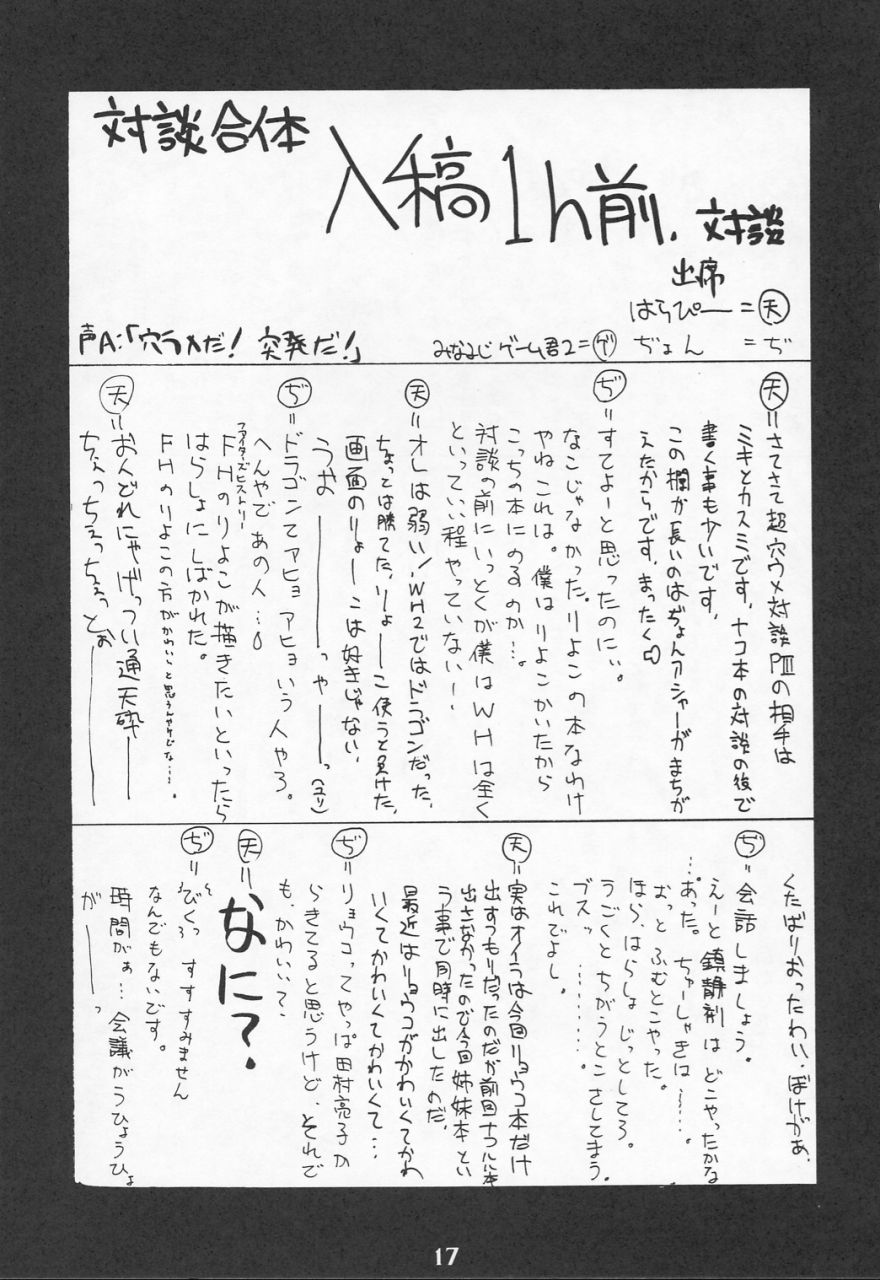 対談合体
入稿1h前.対談
出席
はらぴー=天
ぢょん =ぢ
みなみじゲーム君2=ゲ
声A:「穴ウメだ! 突発だ!」
天=さてさて超穴ウメ対談PⅢの相手は
ミキとカスミです、ナコ本の対談の後で
書く事も少いです、
この欄が長いのはぢょんアシャーがまちが
えたからです、まったく
ぢ=すてよーと思ったのに、、
なこじゃなかった、りよこの本なわけ
やねこれは。僕はりよこかいたから
こっちの本にのるのか…。
対談の前にいっとくが僕はWHは全く
といっていい程やっていない…
天=オレは弱い!、WH2ではドラゴンだった、
ちょっとは勝てた、りょーこ使うと負けた、
画面のりょーこは好きじゃない、
うお――っや――っ(ユリ)
ぢ=ドラゴンてアヒョアヒョいう人やろ。
へんやであの人…。
ファイターズヒストリー
FHのりよこが描きたいといったら
はらしょにしばかれた。
FHのりよこの方がかわいいと思うんやけどな…。
天=おんどれにゃげっつい通天砕――
ちぇっちぇっちぇっとぉ――
くたばりおったわい、ぼけがぁ、
ぢ=会話しましょう。
えーと鎮静剤はどこやったかな
…あった。ちゅーしゃきは……。
おっとふむとこやった。
ほら、はらしょじっとしてろ。
うごくとちがうとこさしてしまう。
ブスッ………。
これでよし。
天=実はオイラは今回リョウコ本だけ
出すつもりだったのだが前回ナコルル本
出さなかったので今回姉妹本とい
う事で同時に出したのだ、
最近はリョウコがかわいくてかわ
いくてかわいくてかわいくて…
ぢ=リョウコってやっぱ田村亮子か
らきてると思うけど、それで
も、かわいい?
天=なに?、
ぢ=びくっ すすすみません
なんでもないです。
時間がぁ…会議がうひょうひょ
が――っ
17